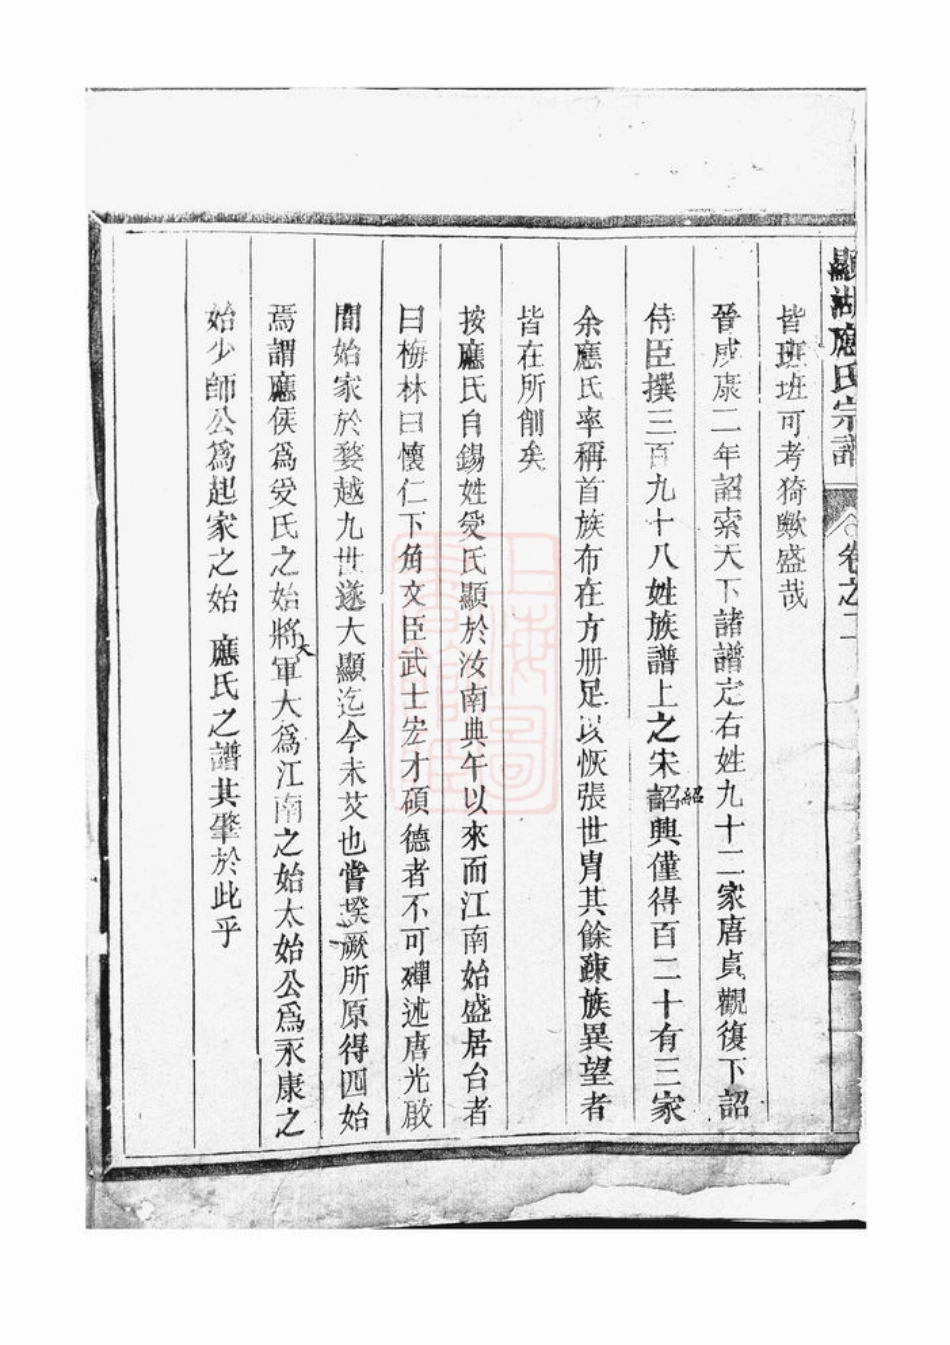 顯湖應氏宗譜 卷之二
皆班班可考猗歟盛哉
晉咸康二年詔索天下諸譜定右姓九十二家唐貞觀復下詔
侍臣撰三百九十八姓族譜上之宋詔興僅得百二十有三家
紹
余應氏率稱首族布在方册足以恢張世胄其餘疎族異望者
皆在所削矣
按應氏自錫姓受氏顯於汝南典午以來而江南始盛居台者
曰梅林曰懷仁下角文臣武士宏才碩德者不可殫述唐光啟
間始家於婺越九世遂大顯迄今未艾也嘗揆厥所原得四始
焉謂應侯爲受氏之始將軍大爲江南之始太始公爲永康之
大
始少師公爲起家之始 應氏之譜其肇於此乎
上海圖